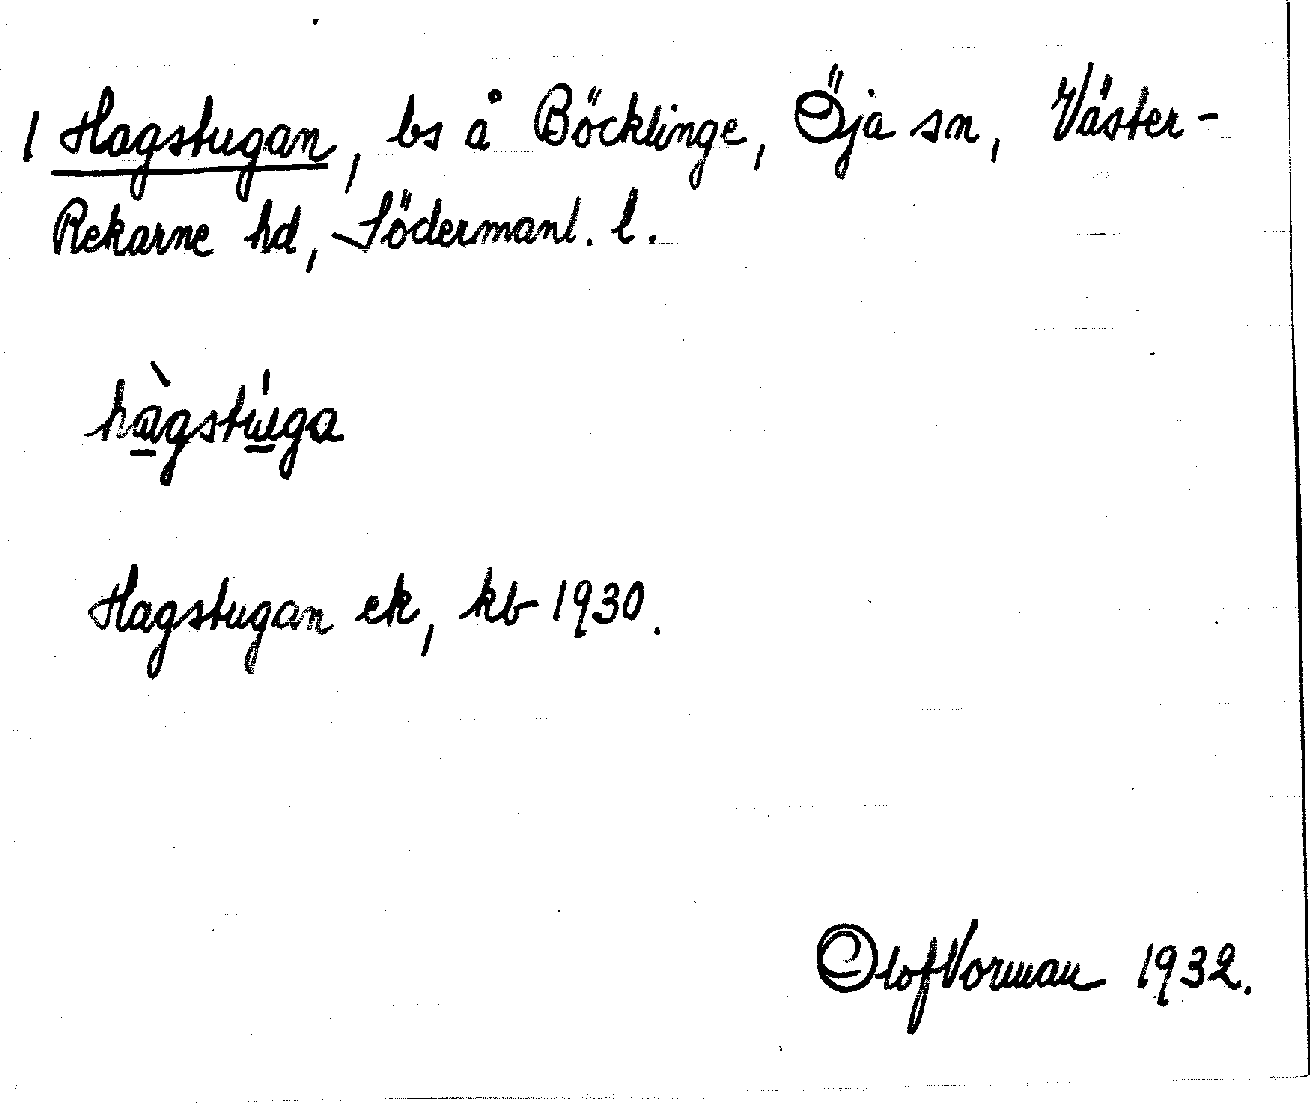 1 Hagstugan, bs å Böcklinge, Öja sn, Väster-
Rekarne hd, Södermanl. l.
hàgstu̍ga
Hagstugan ek, kb 1930.
Olof Vorman 1932.